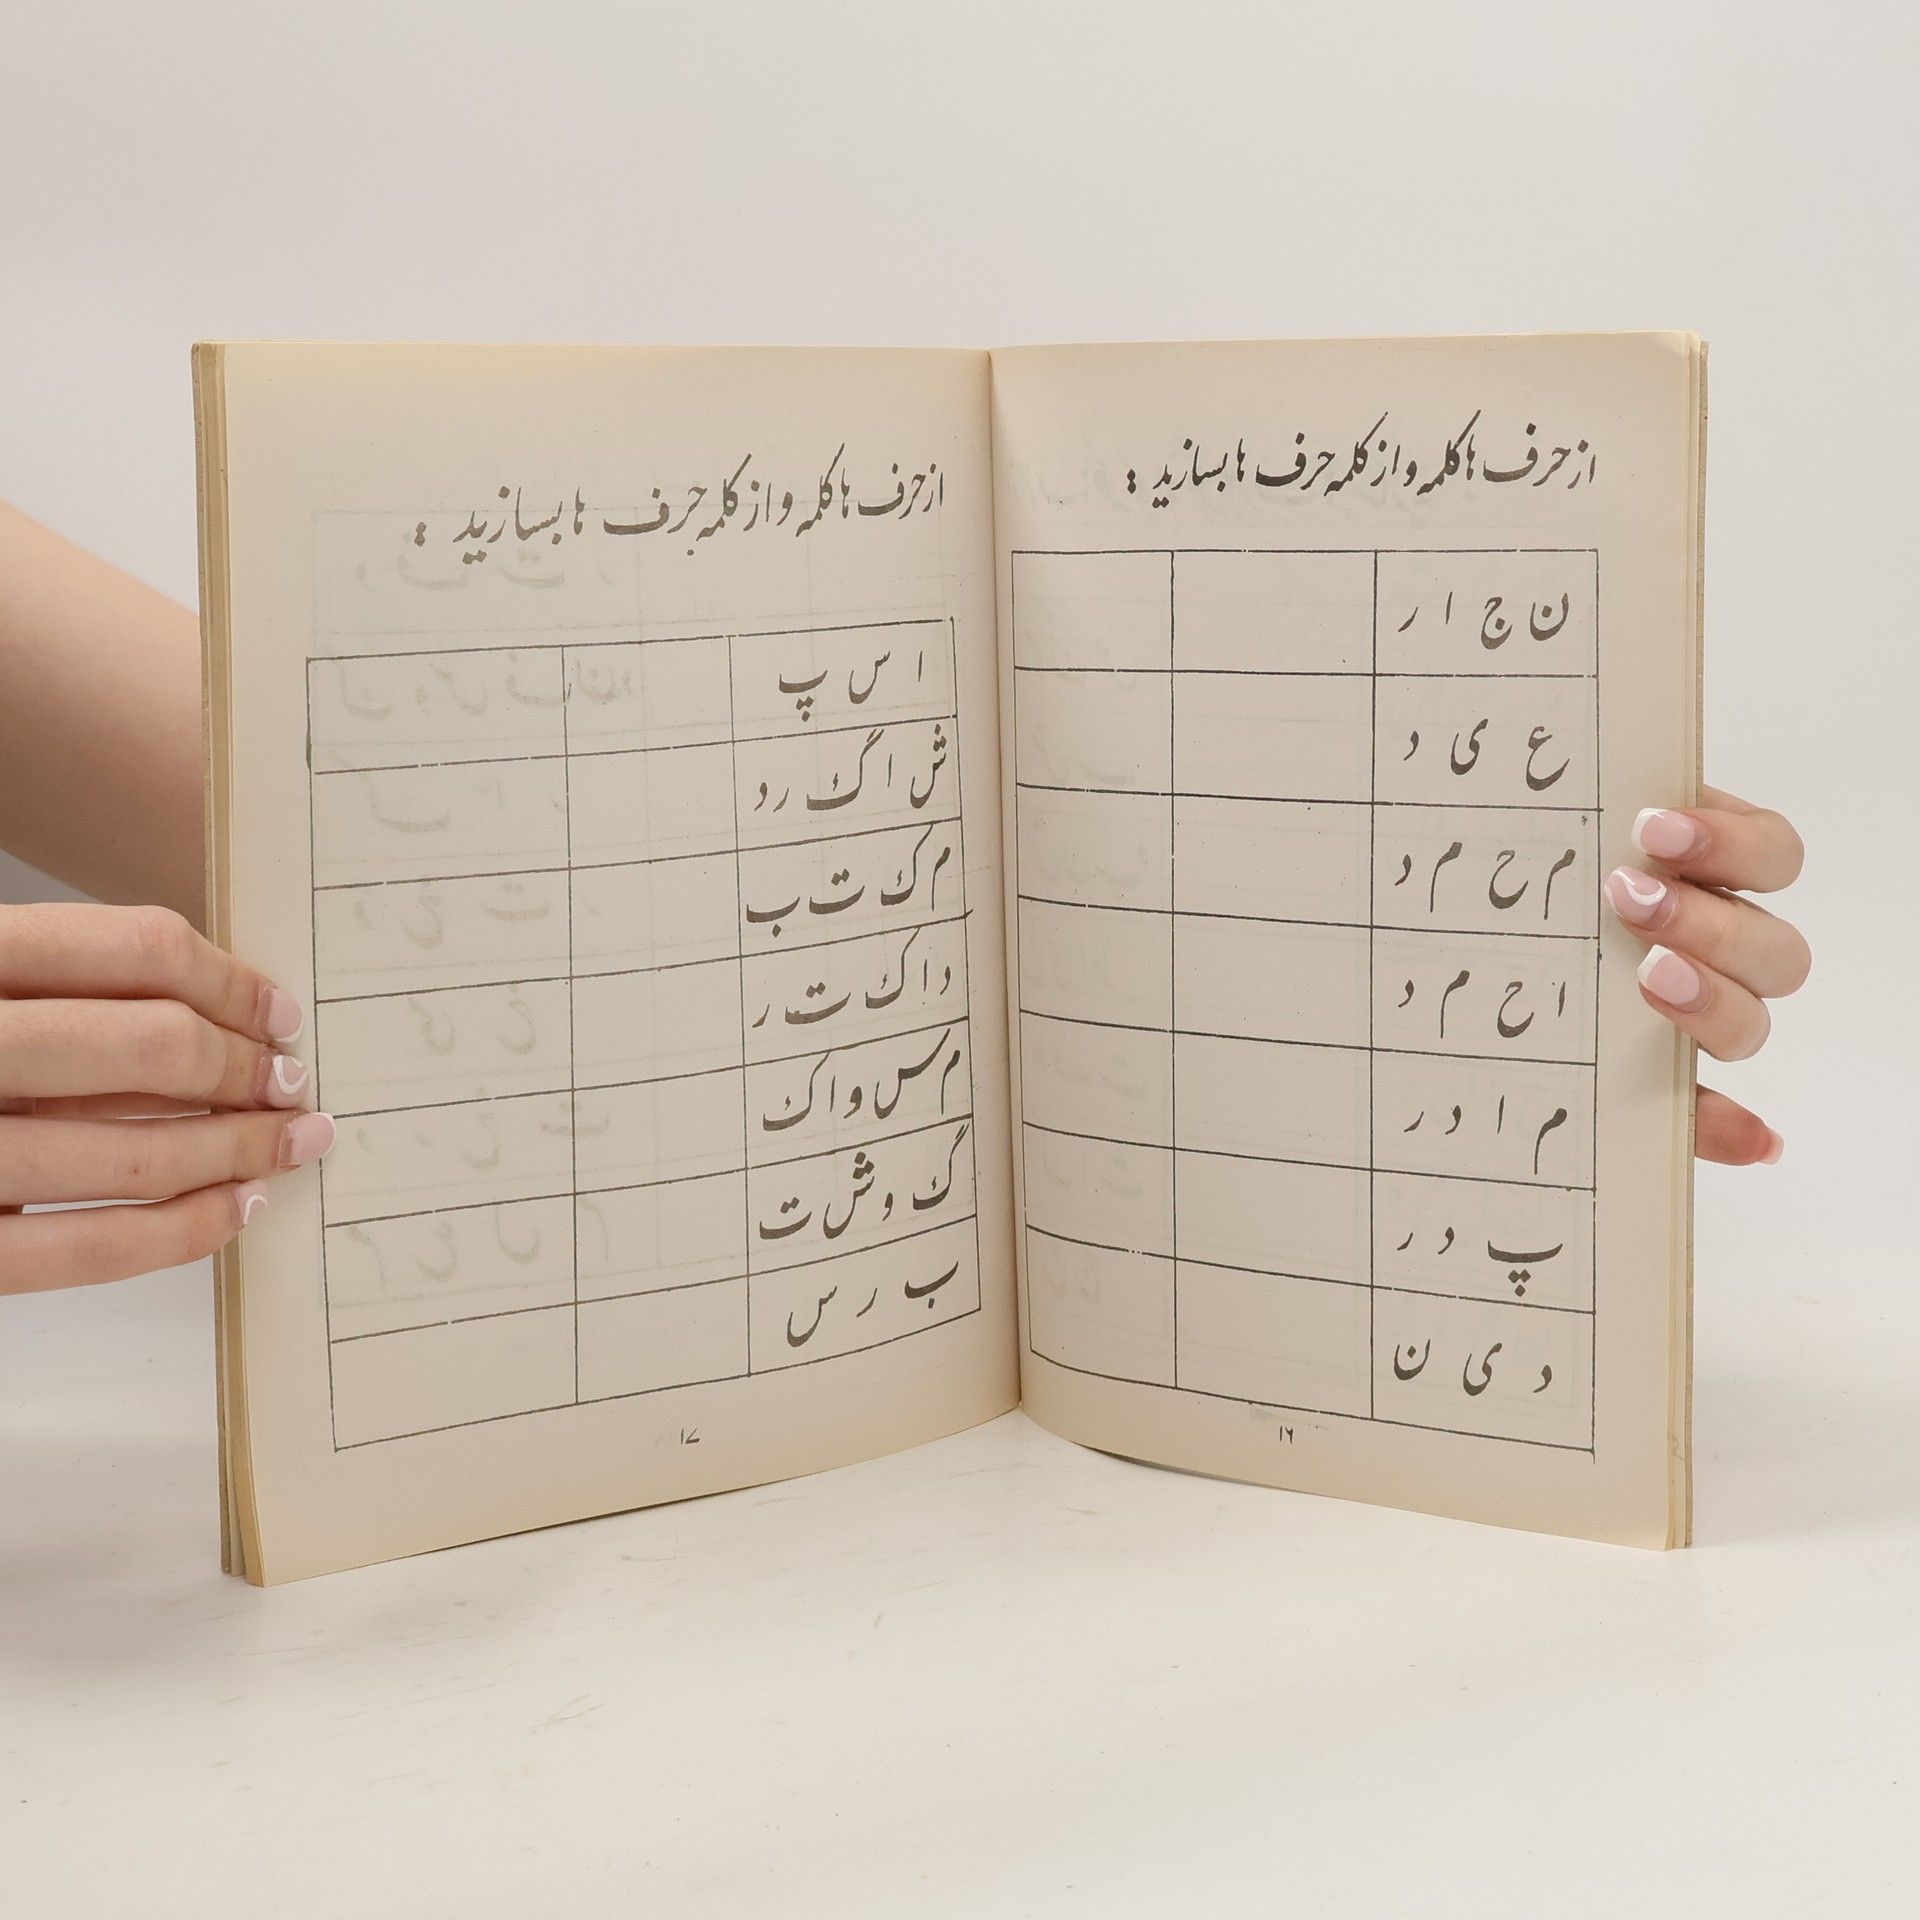 از حرف ها کلمه و از کلمه حرف ها بسازید :
ن ج ا ر
ع ی د
م ح م د
ا ح م د
م ا د ر
پ د ر
د ی ن
۱۶
از حرف ها کلمه و از کلمه حرف ها بسازید :
ا س پ
ش ا گ ر د
م ک ت ب
د ا ک ت ر
م س و ا ک
گ و ش ت
ب ر س
۱۷